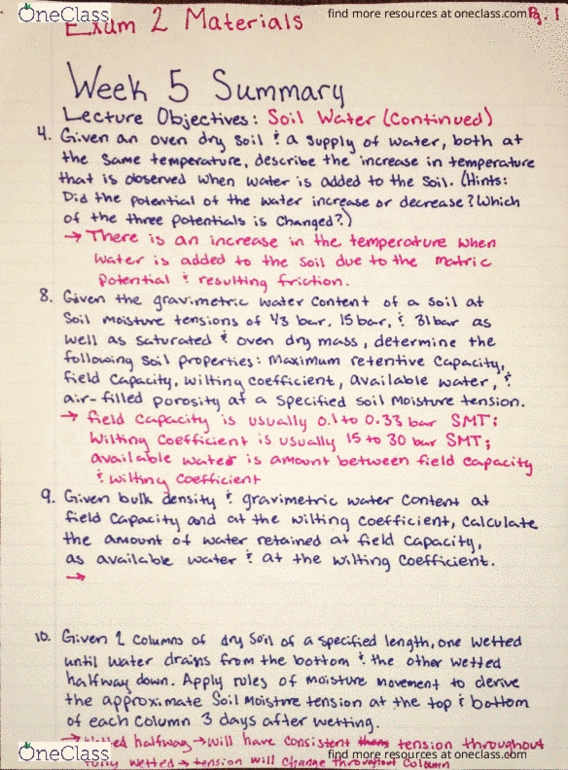 OneClass
find more resources at oneclass.com
Pg. 1
Exam 2 Materials
Week 5 Summary
Lecture Objectives: Soil Water (Continued)
4. Given an oven dry soil & a supply of water, both at
the same temperature, describe the increase in temperature
that is observed when water is added to the soil. (Hints:
Did the potential of the water increase or decrease? Which
of the three potentials is changed?)
→ There is an increase in the temperature when
water is added to the soil due to the matric
potential & resulting friction.
8. Given the gravimetric water content of a soil at
soil moisture tensions of 1/3 bar, 15 bar, & 31 bar as
well as saturated & oven dry mass, determine the
following soil properties: maximum retentive capacity,
field capacity, wilting coefficient, available water, &
air-filled porosity at a specified soil moisture tension.
→ field capacity is usually 0.1 to 0.33 bar SMT;
wilting coefficient is usually 15 to 30 bar SMT;
available water is amount between field capacity
& wilting coefficient
9. Given bulk density & gravimetric water content at
field capacity and at the wilting coefficient, calculate
the amount of water retained at field capacity,
as available water & at the wilting coefficient.
→
10. Given 2 columns of dry soil of a specified length, one wetted
until water drains from the bottom & the other wetted
halfway down. Apply rules of moisture movement to derive
the approximate soil moisture tension at the top & bottom
of each column 3 days after wetting.
→ halfway → will have consistent tension throughout
fully wetted → tension will change throughout column
OneClass
find more resources at oneclass.com